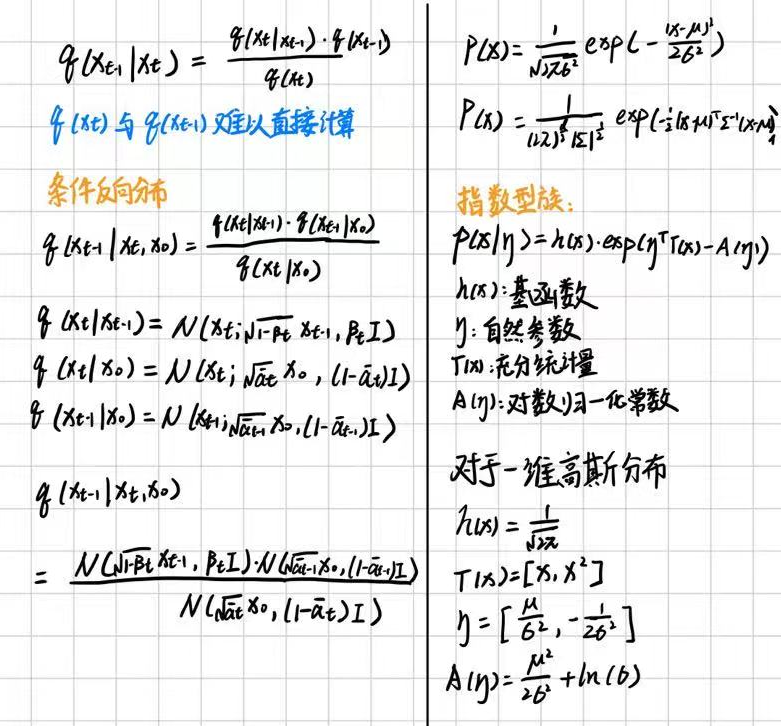 q(x_{t-1}|x_t) = \frac{q(x_t|x_{t-1})·q(x_{t-1})}{q(x_t)}
q(x_t)与q(x_{t-1})难以直接计算
条件反向分布
q(x_{t-1}|x_t,x_0) = \frac{q(x_t|x_{t-1})·q(x_{t-1}|x_0)}{q(x_t|x_0)}
q(x_t|x_{t-1}) = N(x_t;\sqrt{1-β_t} x_{t-1}, β_t I)
q(x_t|x_0) = N(x_t;\sqrt{\bar{α}_t} x_0, (1-\bar{α}_t)I)
q(x_{t-1}|x_0) = N(x_{t-1};\sqrt{\bar{α}_{t-1}} x_0, (1-\bar{α}_{t-1})I)
q(x_{t-1}|x_t,x_0)
= \frac{N(\sqrt{1-β_t} x_{t-1}, β_t I)·N(\sqrt{\bar{α}_{t-1}} x_0, (1-\bar{α}_{t-1})I)}{N(\sqrt{\bar{α}_t} x_0, (1-\bar{α}_t)I)}
P(x) = \frac{1}{\sqrt{2πσ^2}} exp(-\frac{(x-μ)^2}{2σ^2})
P(x) = \frac{1}{(2π)^{\frac{d}{2}}|Σ|^{\frac{1}{2}}} exp(-\frac{1}{2}(x-μ)^T Σ^{-1}(x-μ))
指数型族:
p(x|η) = h(x)·exp(η^T T(x) - A(η))
h(x):基函数
η:自然参数
T(x):充分统计量
A(η):对数归一化常数
对于一维高斯分布
h(x) = \frac{1}{\sqrt{2π}}
T(x) = [x, x^2]
η = [\frac{μ}{σ^2}, -\frac{1}{2σ^2}]
A(η) = \frac{μ^2}{2σ^2} + ln(σ)